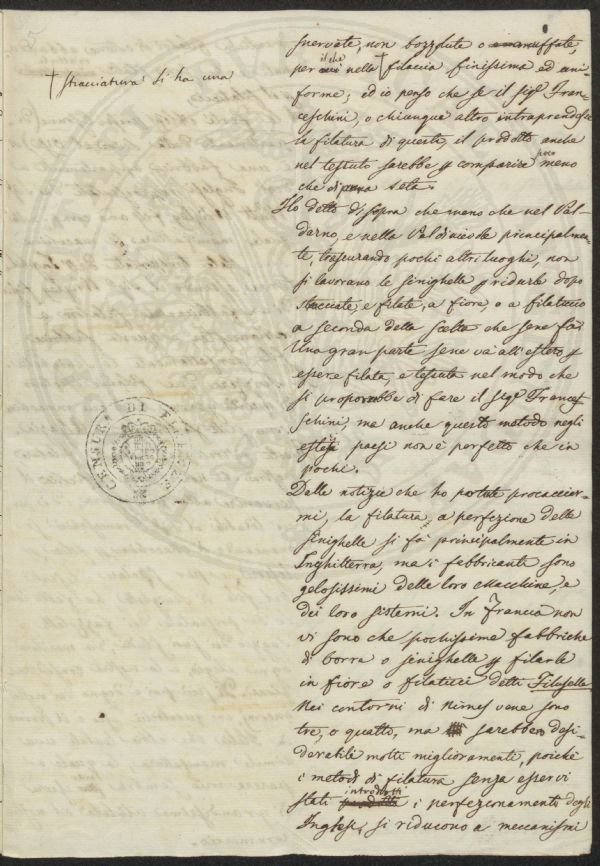 † stracciatura si ha una
snervate, non bozzolute o ammuffate,
per il che nella † filaccia finissima ed uni-
forme; ed io penso che se il Sigr Fran-
ceschini, o chiunque altro intraprendesse
la filatura di queste, il prodotto anche
nel tessuto sarebbe p comparire poco meno
che di seta.
Ho detto di sopra che meno che nel Val-
darno, e nella Valdinievole principalmen-
te, trascurando pochi altri luoghi, non
si lavorano le sinighelle p ridurle dopo
stracciate, e filate, a fiore, o a filaticcio
a seconda della scelta che sene fà.
Una gran parte sene và all'estero p
essere filata, e tessuta nel modo che
si proporrebbe di fare il Sigr France-
schini, ma anche questo metodo negli
esteri paesi non è perfetto che in
pochi.
Dalle notizie che ho potute procacciar-
mi, la filatura, a perfezione delle
sinighelle si fà principalmente in
Inghilterra, ma i fabbricanti sono
gelosissimi delle loro Macchine, e
dei loro sistemi. In Francia non
vi sono che pochissime fabbriche
di borra o sinighelle p filarle
in fiore o filaticci detti Filusella.
Nei contorni di Nimes vene sono
tre, o quattro, ma sarebbero desi-
derabili molti miglioramenti, poichè
i metodi di filatura senza esservi
stati introdotti i perfezionamenti degli
Inglesi, si riducono a meccanismi
CENSURA DI